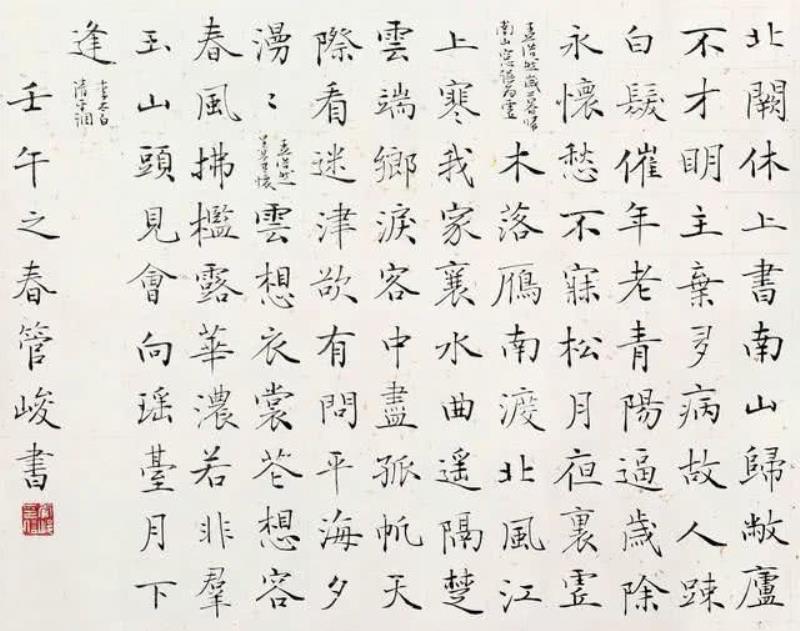 北闕休上書南山歸敝廬
不才明主棄多病故人踈
白髮催年老青陽逼歲除
永懷愁不寐松月夜裏虛
孟浩然歲暮歸
南山
木落鴈南渡北風江
上寒我家襄水曲遥隔楚
雲端鄉淚客中盡孤帆天
際看迷津欲有問平海夕
漫〻
孟浩然
早寒有懷
雲想衣裳花想容
春風拂檻露華濃若非羣
玉山頭見會向瑶臺月下
逢
李太白
清平調
壬午之春管峻書